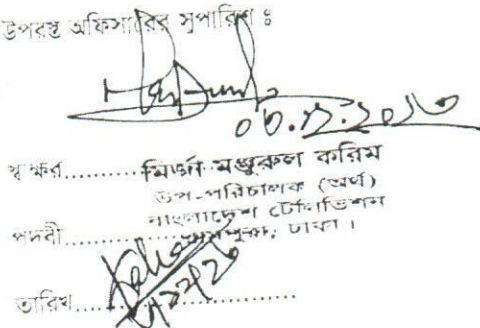 উপরস্থ অফিসারের সুপারিশ ঃ
০৬.১২.২০১৩
স্বাক্ষর..........মির্জা মঞ্জুরুল করিম
উপ-পরিচালক (অর্থ)
বাংলাদেশ টেলিভিশন
পদবী..........রামপুরা, ঢাকা।
তারিখ..............................